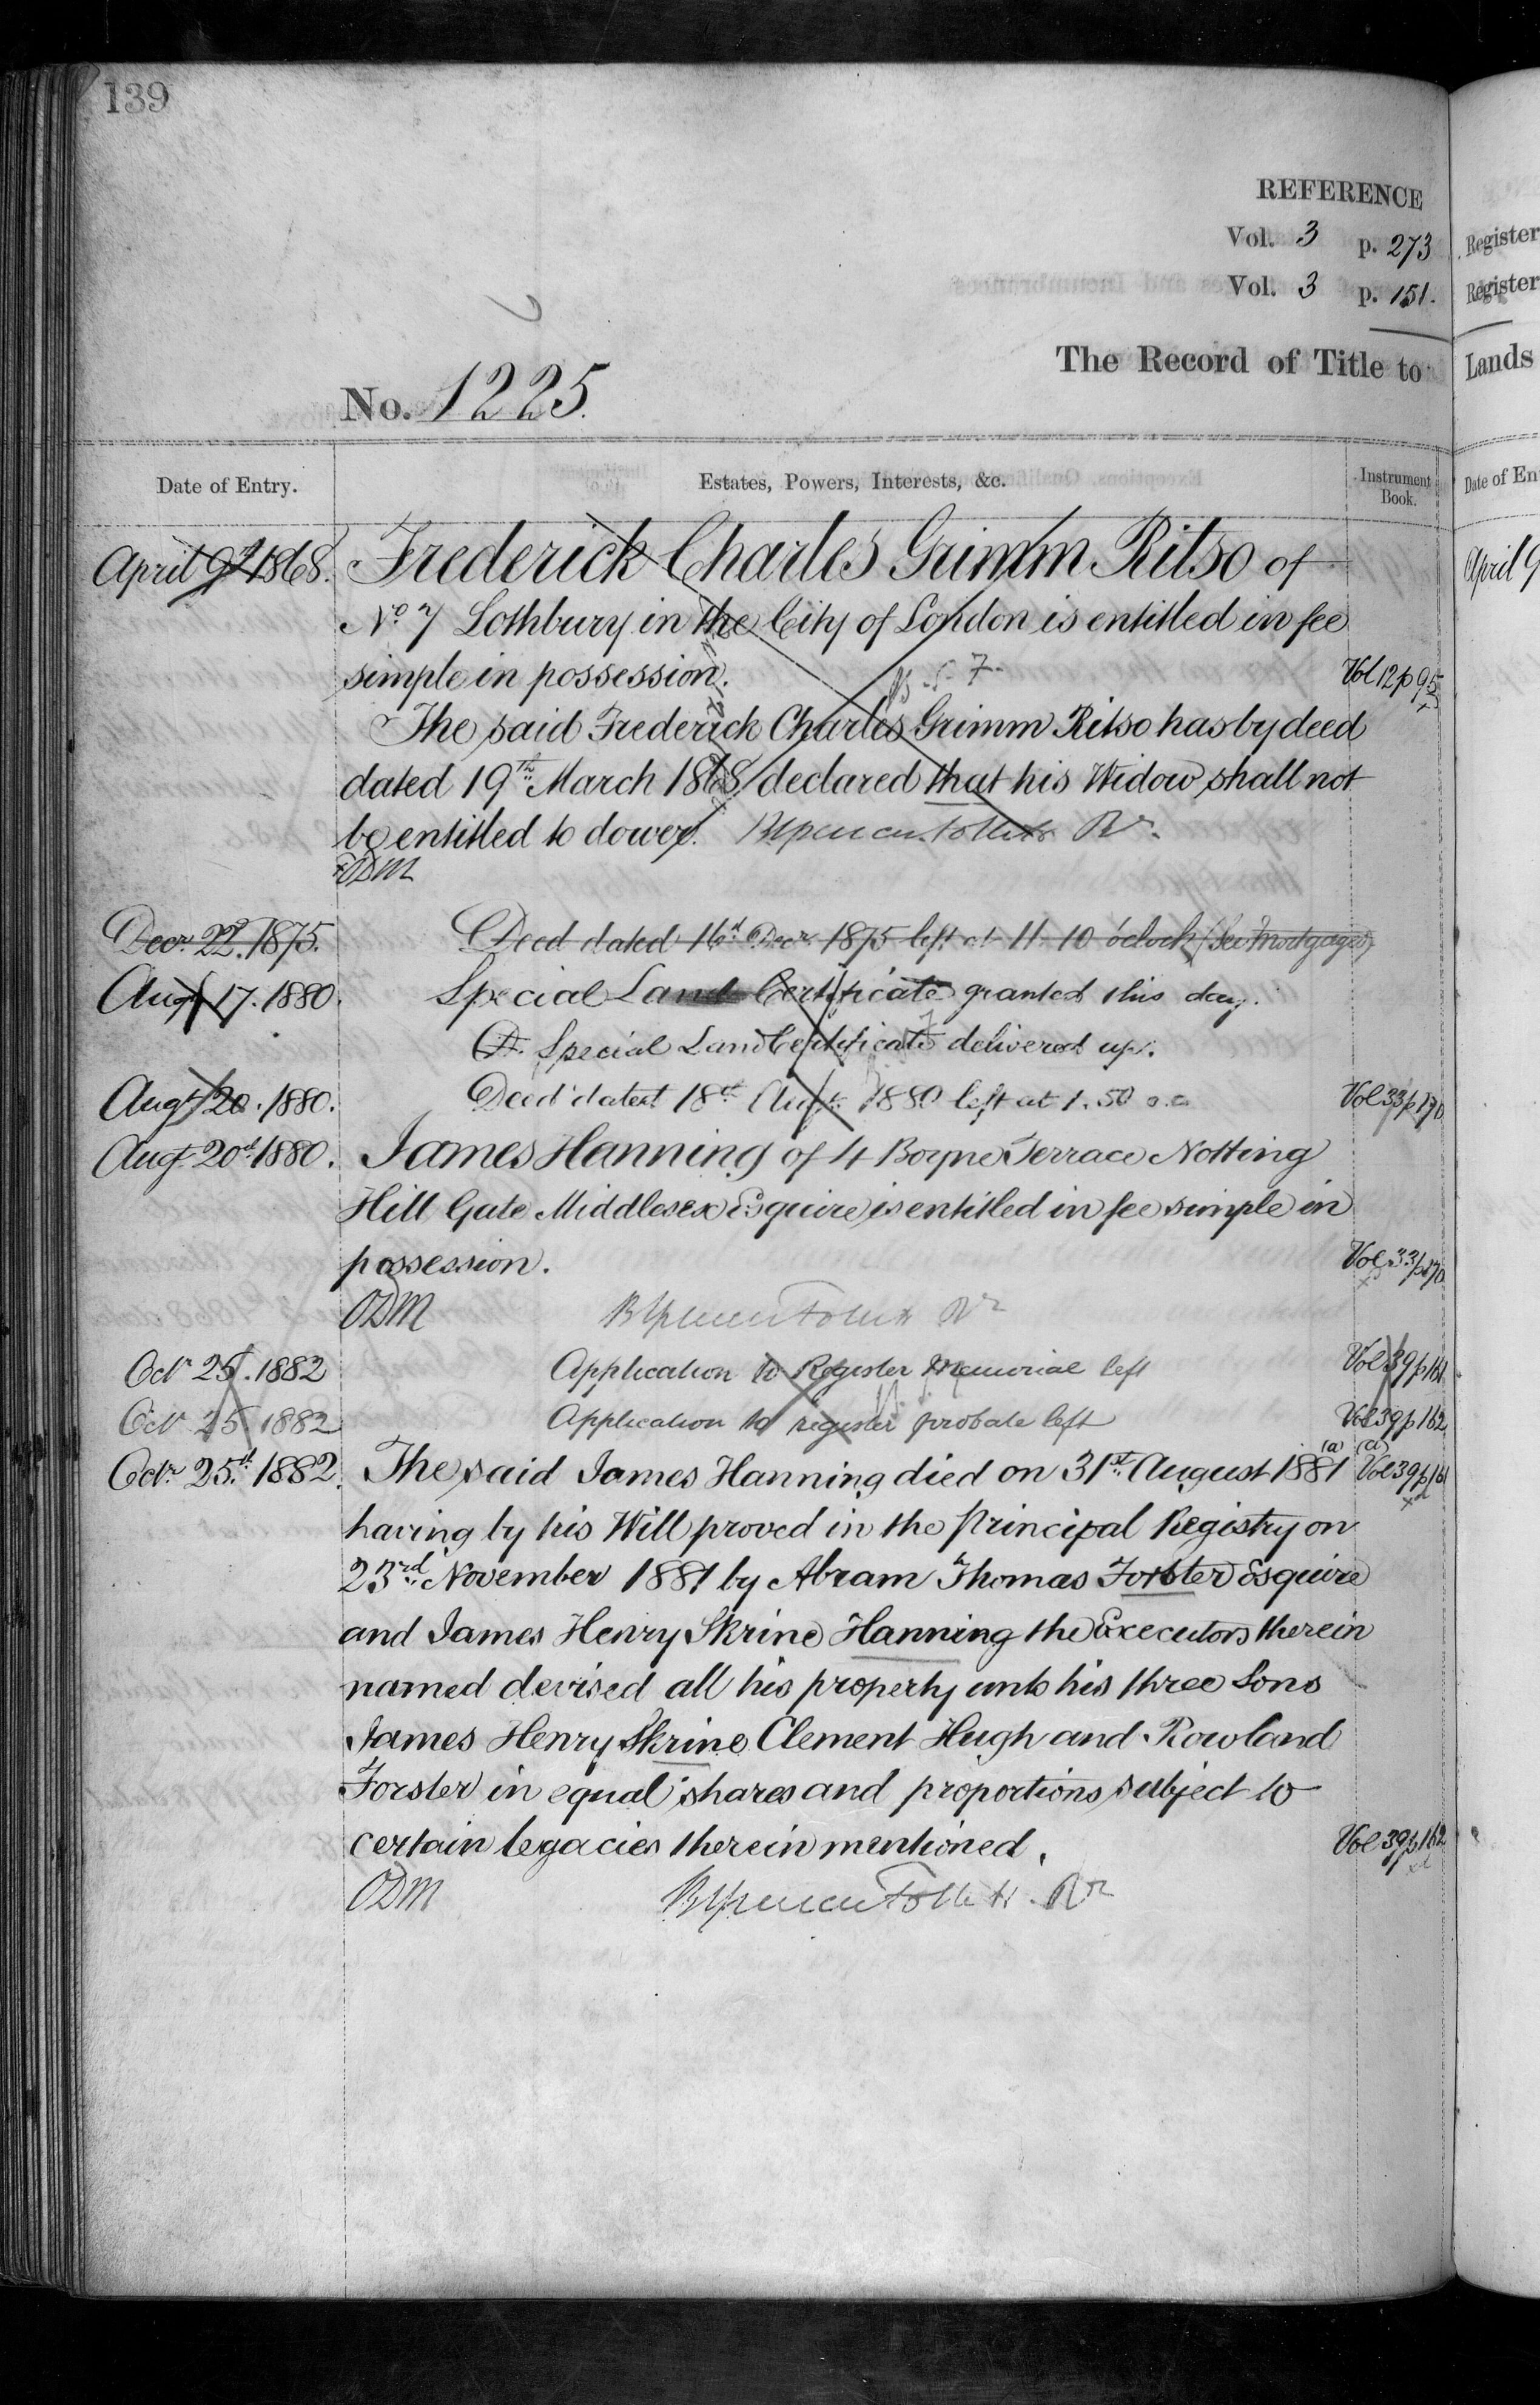 139
REFERENCE
Vol. 3 p. 273
Vol. 3 p. 151.
The Record of Title to
No. 1225.
Date of Entry.
Estates, Powers, Interests, &c.
Instrument Book.
April 9th 1868. Frederick Charles Grimm Ritso of
No. 7 Lothbury in the City of London is entitled in fee
simple in possession. Vol 12 p 95
The said Frederick Charles Grimm Ritso has by deed
dated 19th March 1868 declared that his Widow shall not
be entitled to dower. Rr.
ODM
Decr. 22d. 1875. Deed dated 16th Decr. 1875 left at 11.10 o'clock (See Mortgages)
Augt 17. 1880. Special Land Certificate granted this day.
Do. Special Land Certificate delivered up.
Augt 20. 1880. Deed dated 18th Augt. 1880 left at 1.50 o.c. Vol 33 p 170
Aug. 20th 1880. James Hanning of 4 Boyne Terrace Notting
Hill Gate Middlesex Esquire is entitled in fee simple in
possession. Vol 33 p 170
ODM Rr
Octr 25. 1882 Application to Register Memorial left Vol 39 p 161
Octr 25 1882 Application to register probate left Vol 39 p 162
Octr 25th. 1882. The said James Hanning died on 31st August 1881 (a) (a) Vol 39 p 161
having by his Will proved in the Principal Registry on
23rd November 1881 by Abram Thomas Forster Esquire
and James Henry Skrine Hanning the Executors therein
named devised all his property unto his three Sons
James Henry Skrine Clement Hugh and Rowland
Forster in equal shares and proportions subject to
certain legacies therein mentioned. Vol 39 p 162
ODM Rr
Register
Register
Lands
Date of En
April 9